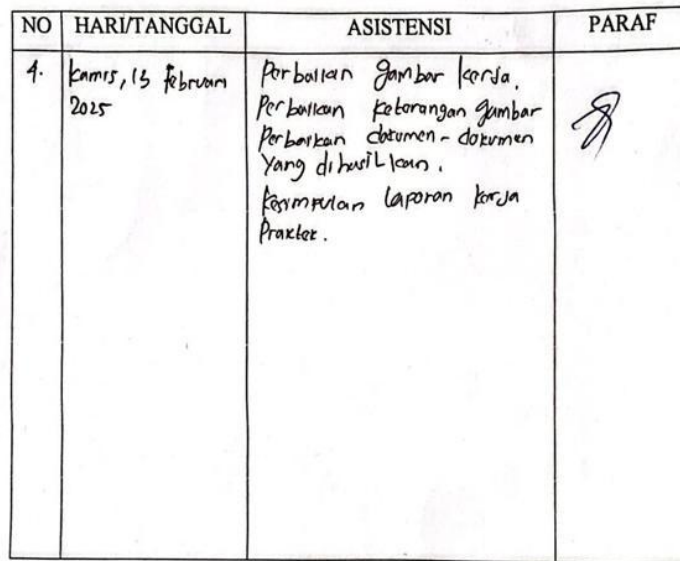 NO HARI/TANGGAL ASISTENSI PARAF
4. Kamis, 13 Februari 2025
Perbaikan gambar kerja.
Perbaikan keterangan gambar
Perbaikan dokumen - dokumen
yang dihasilkan.
Kesimpulan laporan kerja
Praktek.